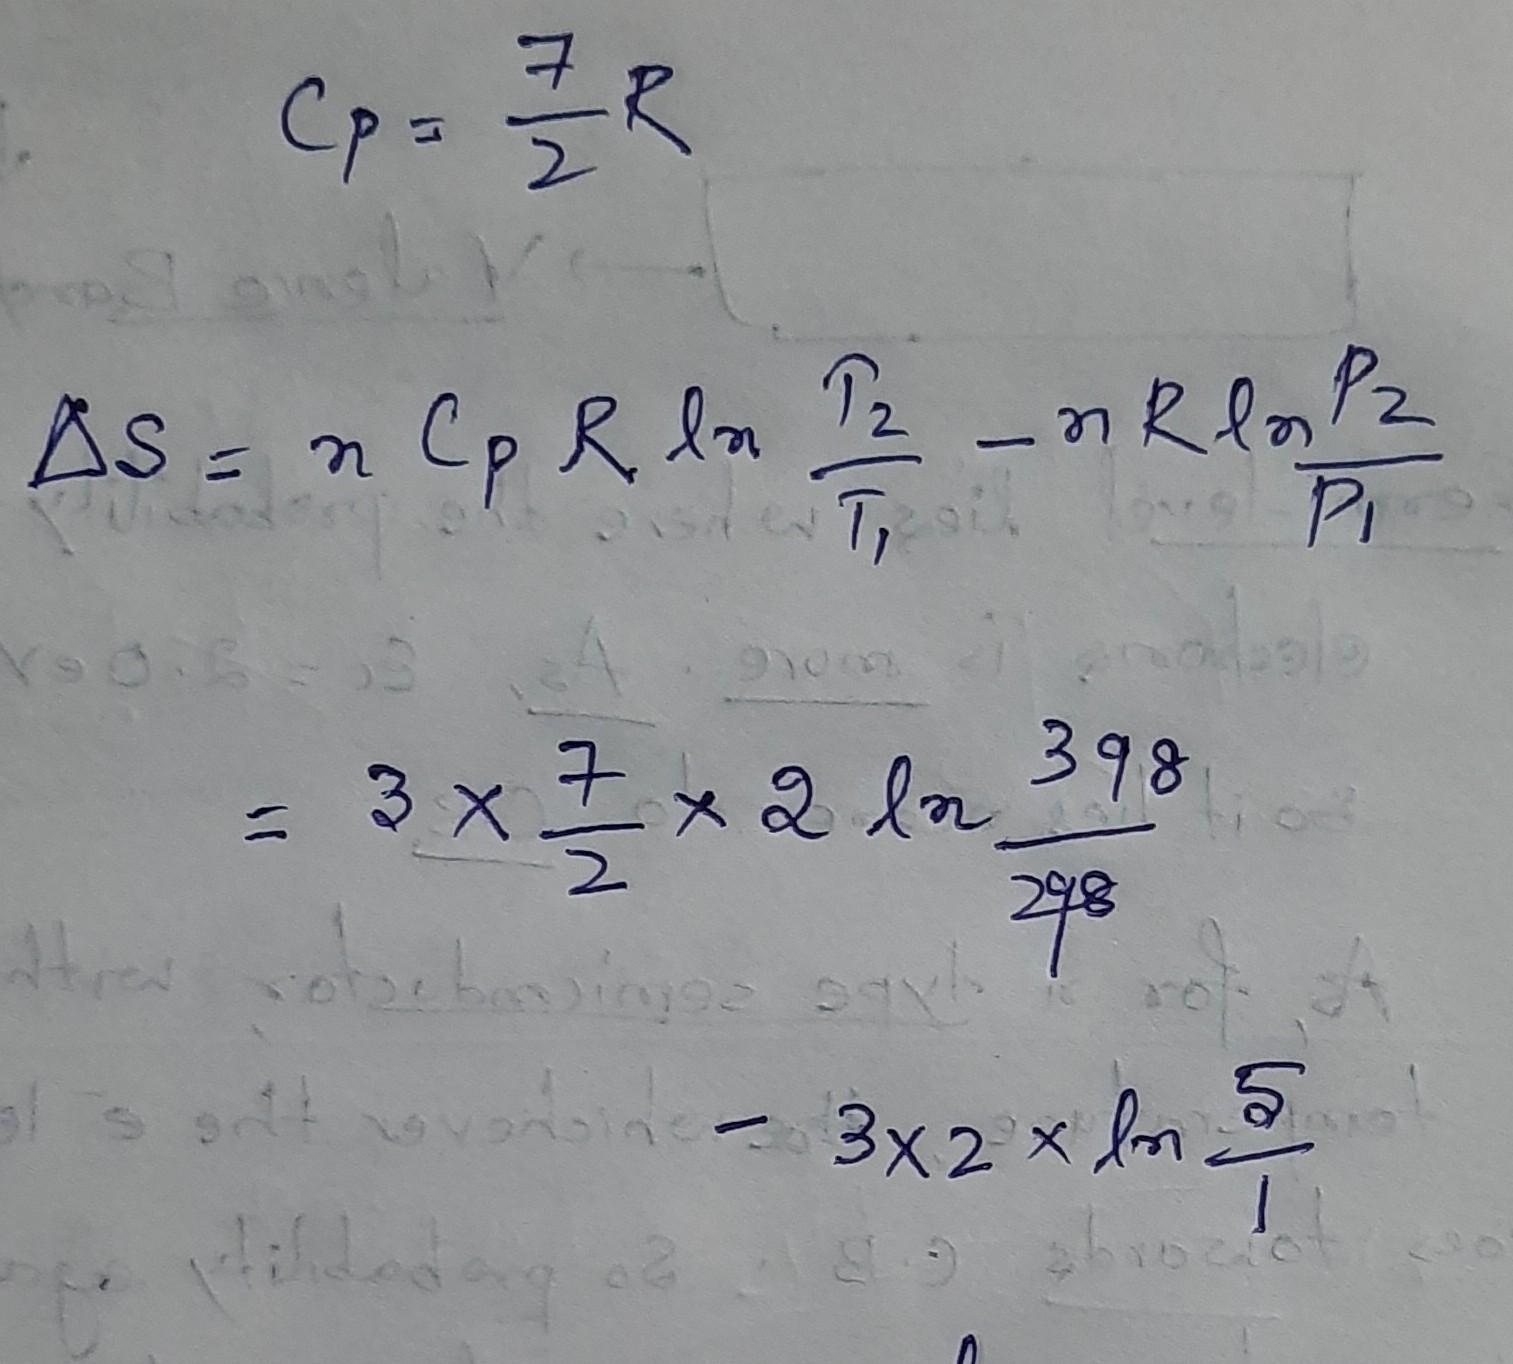 Cp = 7/2 R
ΔS = n Cp R ln T2/T1 - n R ln P2/P1
= 3 × 7/2 × 2 ln 398/298
- 3 × 2 × ln 5/1